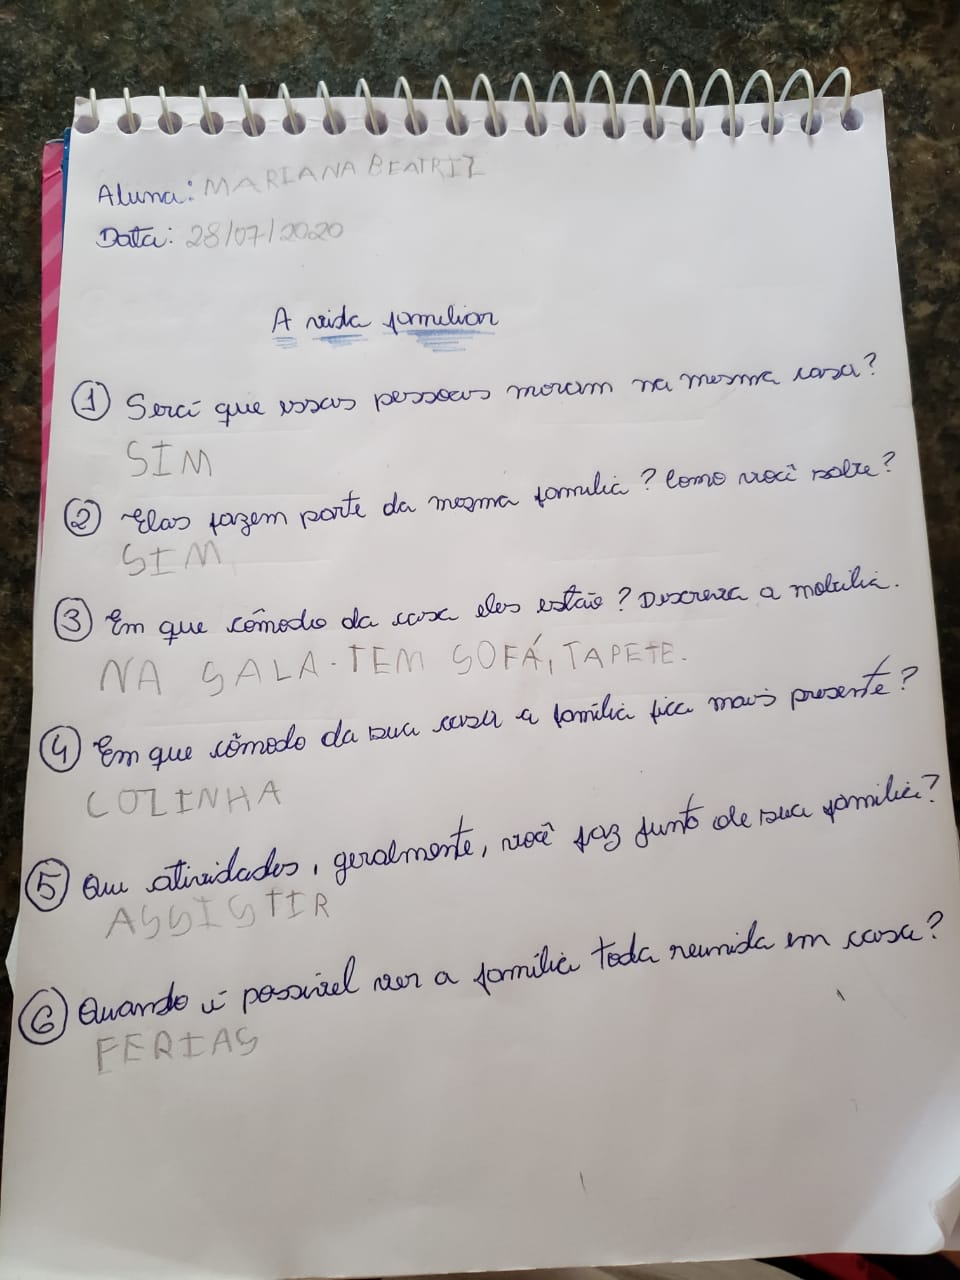 Aluna: MARIANA BEATRIZ
Data: 28/07/2020
A vida familiar
1 Será que essas pessoas moram na mesma casa?
SIM
2 Elas fazem parte da mesma família? Como você sabe?
SIM
3 Em que cômodo da casa eles estão? Descreva a mobília.
NA SALA. TEM SOFÁ, TAPETE.
4 Em que cômodo da sua casa a família fica mais presente?
COZINHA
5 Que atividades, geralmente, você faz junto de sua família?
ASSISTIR
6 Quando é possível ver a família toda reunida em casa?
FERIAS